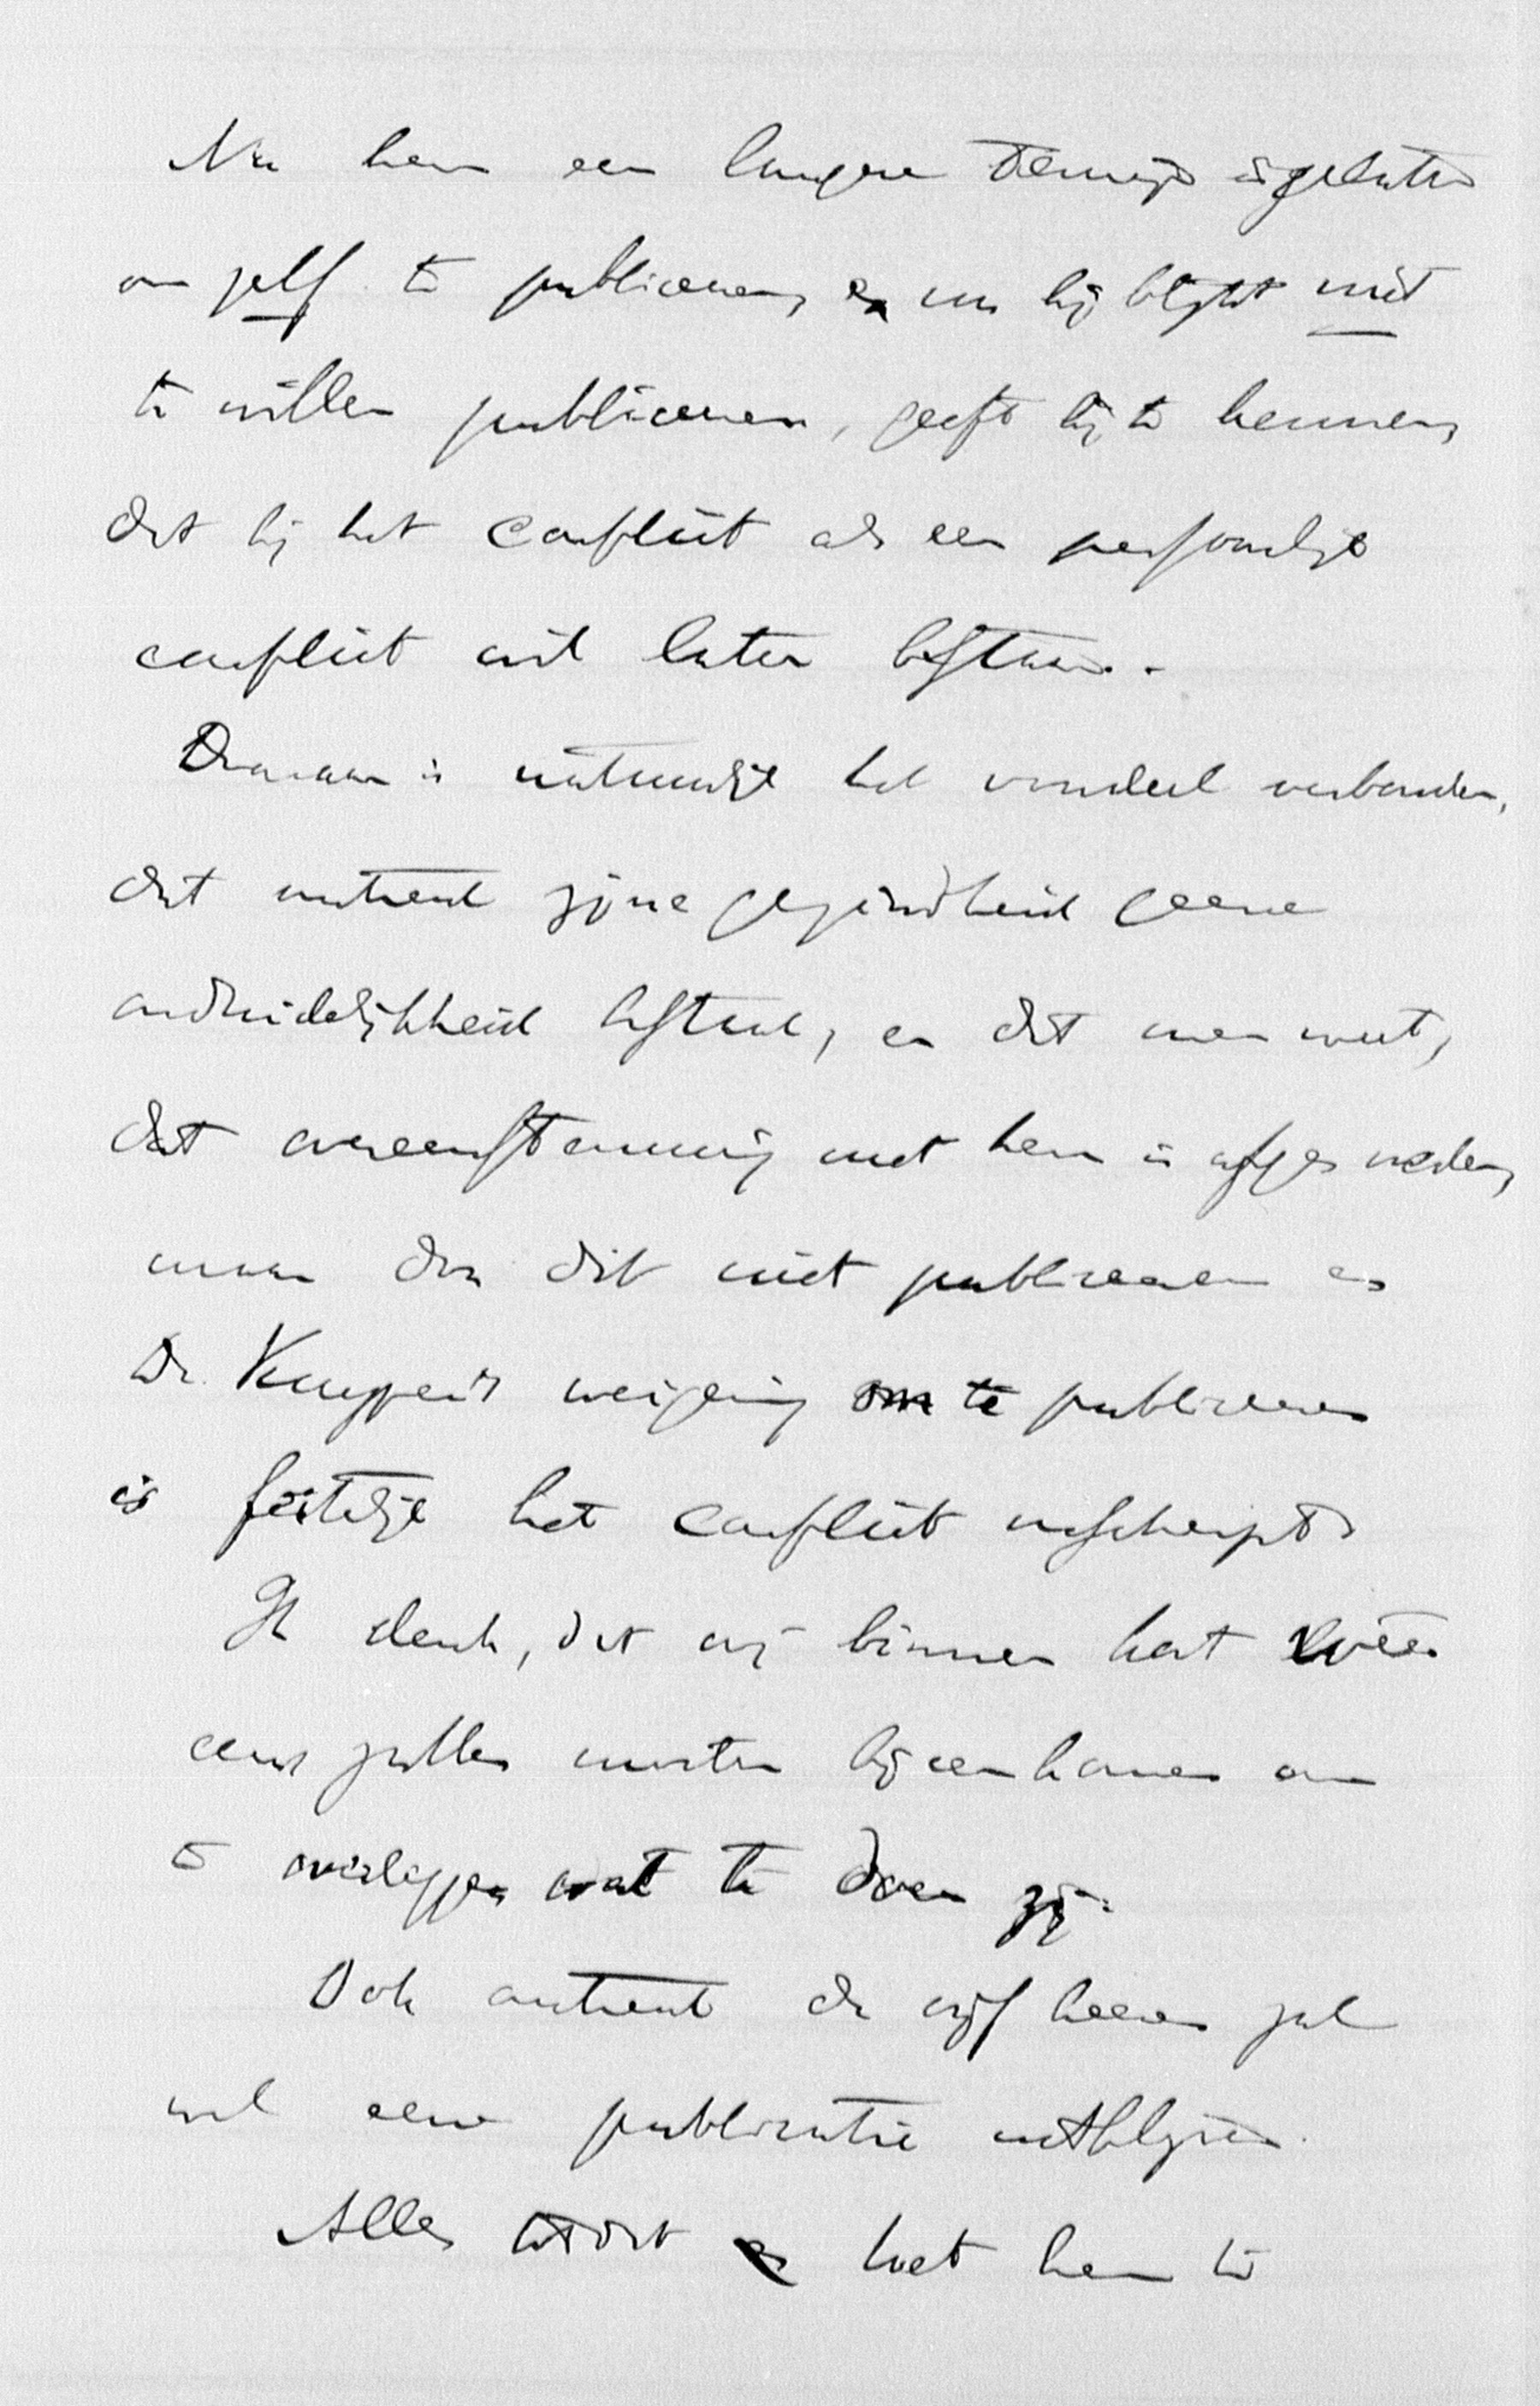 Nu hem een langere termijn is gelaten
om zelf te publiceeren, en nu hij blijkt niet
te willen publiceeren, geeft hij te kennen,
dat hij het conflict als een persoonlijk
conflict wil laten bestaan.
Daaraan is natuurlijk het voordeel verbonden,
dat omtrent zijne gezindheid geene
onduidelijkheid bestaat, en dat men weet,
dat overeenstemming met hem is afgesneden,
maar door dit niet publiceeren en
Dr. Kuyper's weigering om te publiceeren
is feitelijk het conflict verscherpt.
Ik denk, dat wij binnen kort weer
eens zullen moeten bijeenkomen om
te overleggen wat te doen zij.
Ook omtrent de vijf heeren zal
wel eene publicatie uitblijven.
Alles wordt het hem te